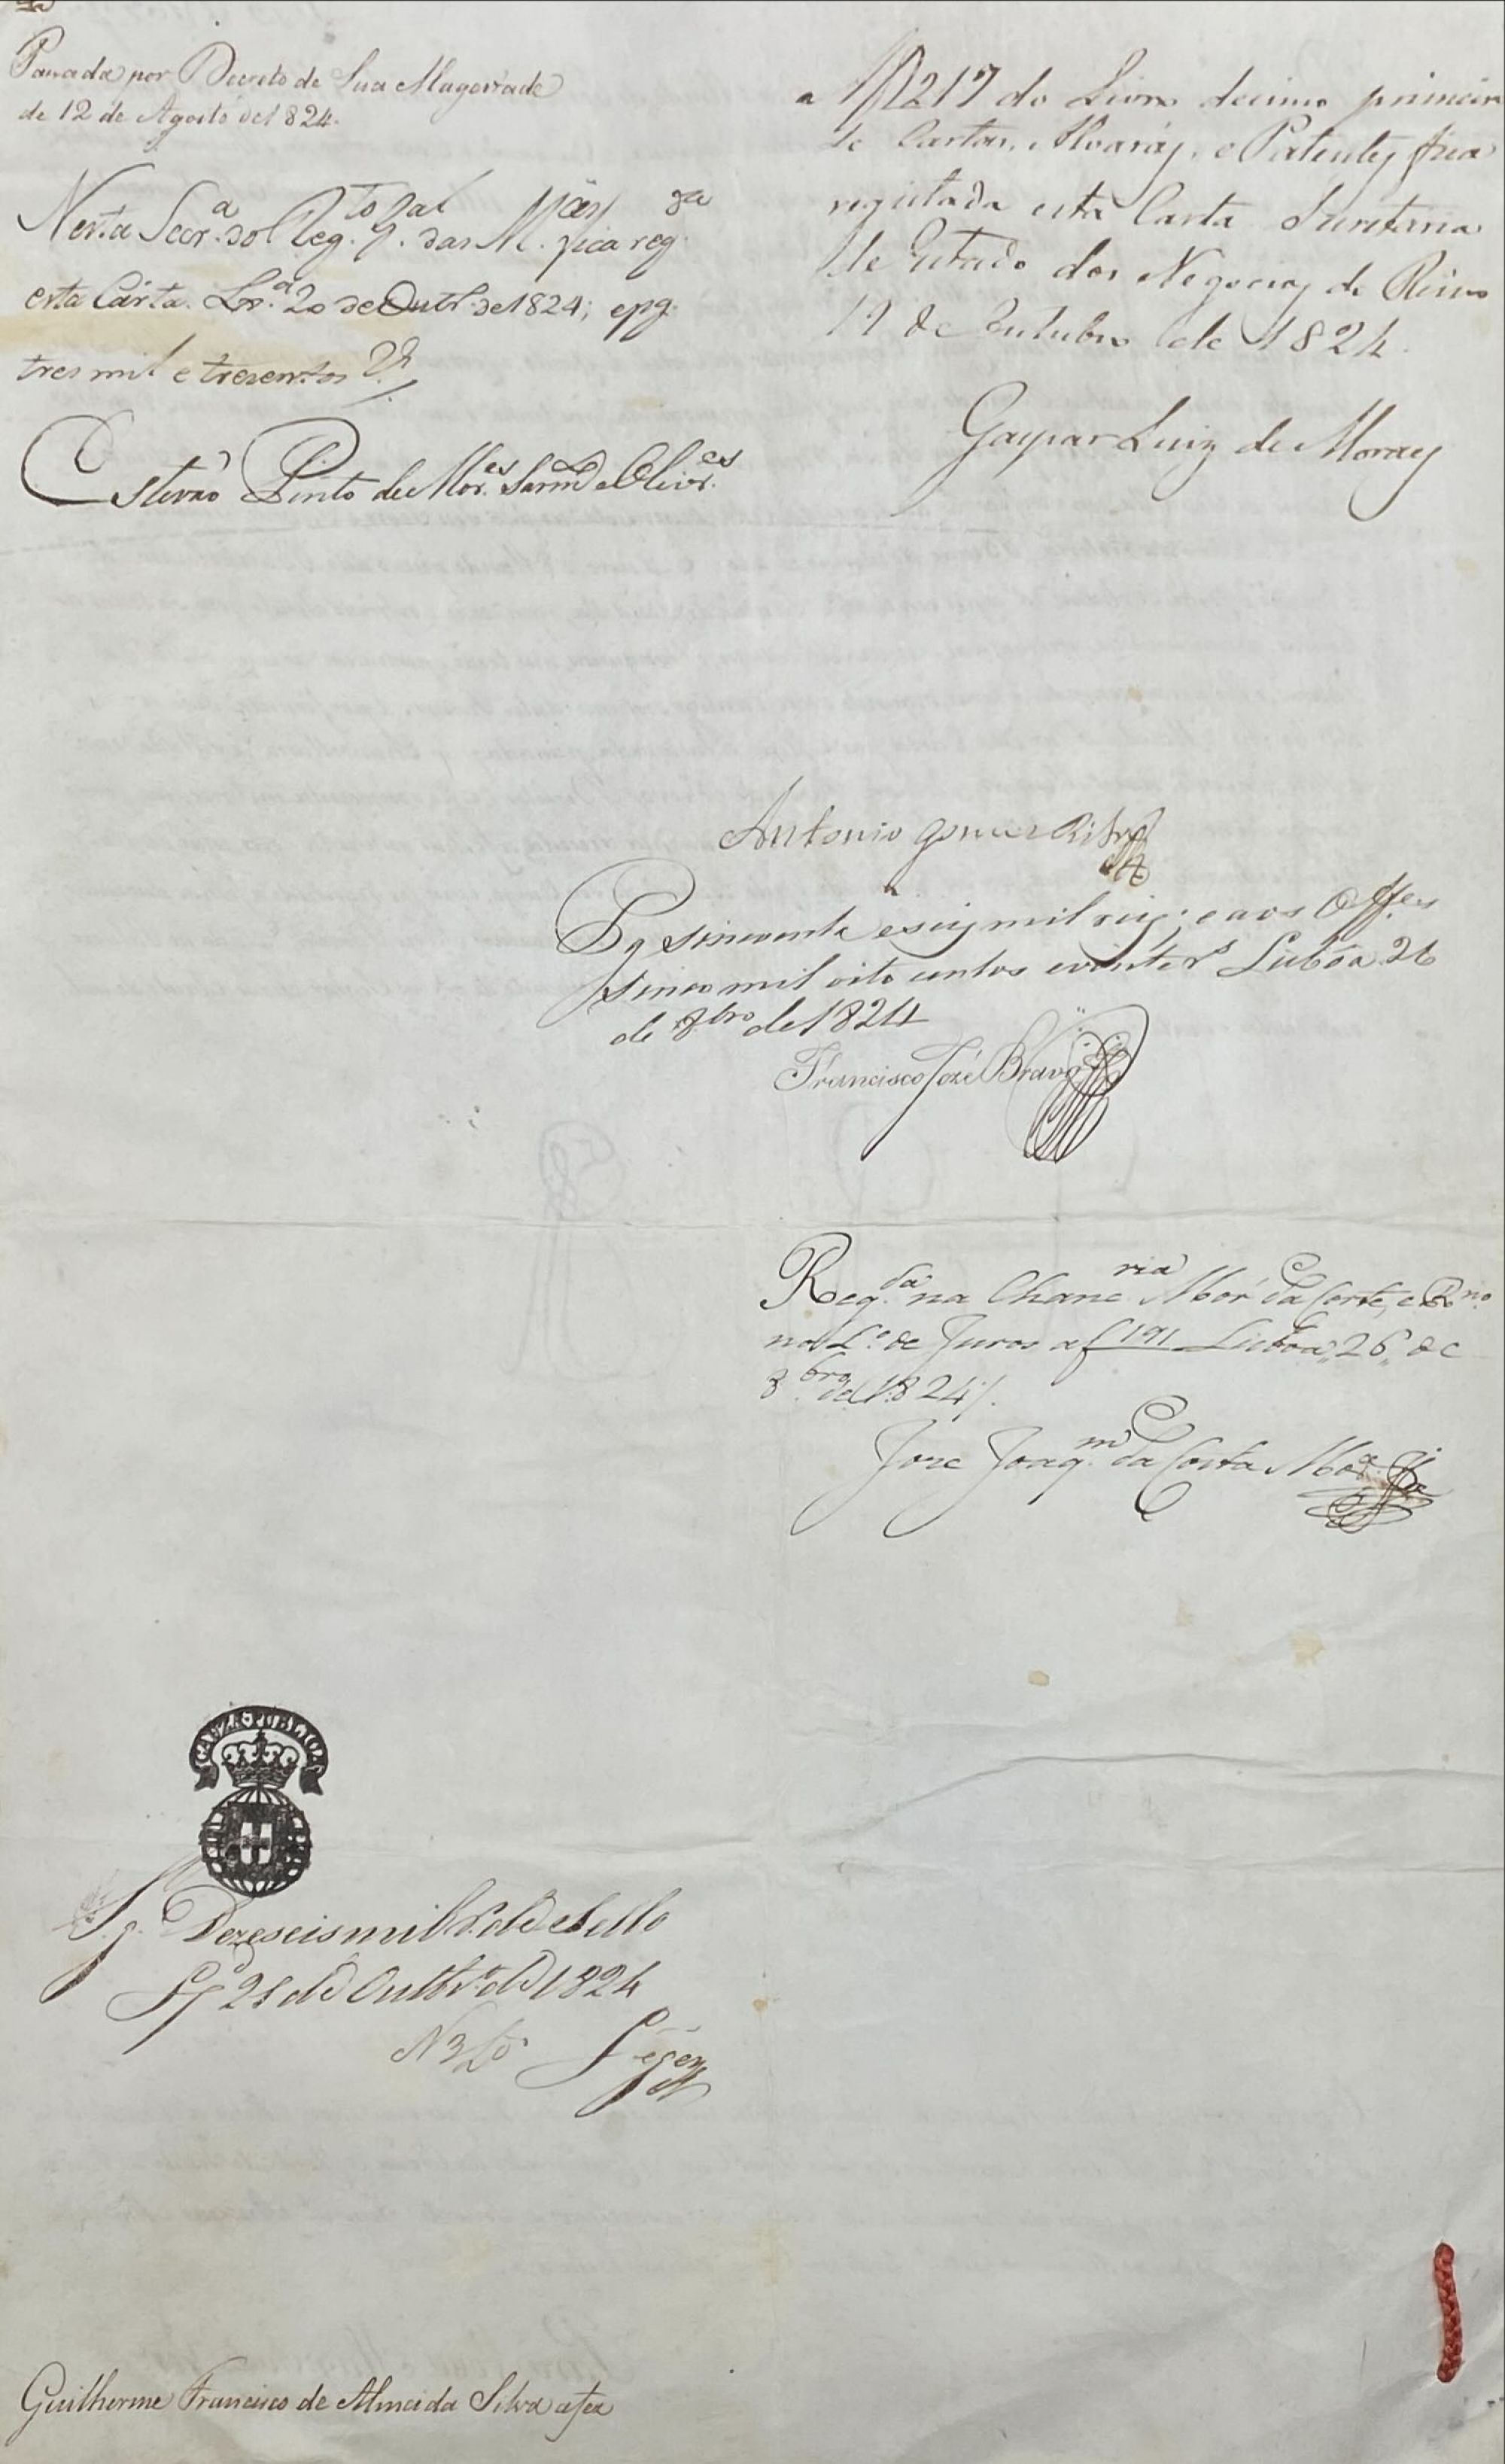 Passada por Decreto de Sua Magestade
de 12 de Agosto de 1824.
Nesta Secr.a do Reg.to G.al das M.ces fica reg.da
esta Carta. Lx.a 20 de Outr.o de 1824; e pg.
tres mil e tresentos r.s
Estevaõ Pinto de Mor.es Sarm.to e Oliv.es
a f 217 do Livro decimo primeiro
de Cartas, Alvarás, e Patentes fica
registada esta Carta Secretaria
de Estado dos Negocios do Reino
19 de Outubro de 1824.
Gaspar Luiz de Moraes
Antonio Gomes Ribr.o
Pg sincoenta e seis mil reis; e aos Off.es
sinco mil oito centos e vinte r.s Lisboa 26
de 8bro de 1824
Francisco José Bravo
Reg.da na Chanc.ria Mór da Corte, e R.no
no L.o de Juros a f 191 Lisboa 26 de
8.bro de 1824.
Jose Joaq.m da Costa
P.g. Dezeseis mil r. de Sello
21 de Outbr.o de 1824
Guilherme Francisco de Almeida Silva a fez